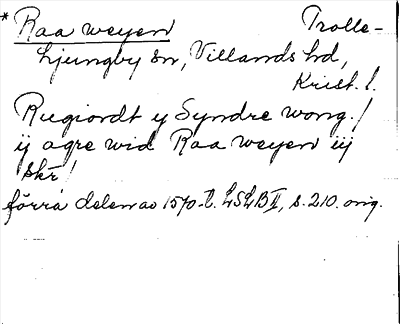 * Raa weyen Trolle-
Ljungby sn, Villands hd,
Krist. l.
Rugiordt y Syndre wong./
ij agre wid Raa weyen iij
skr/
förra delen av 1570-t. LSLB II, s. 210. orig.